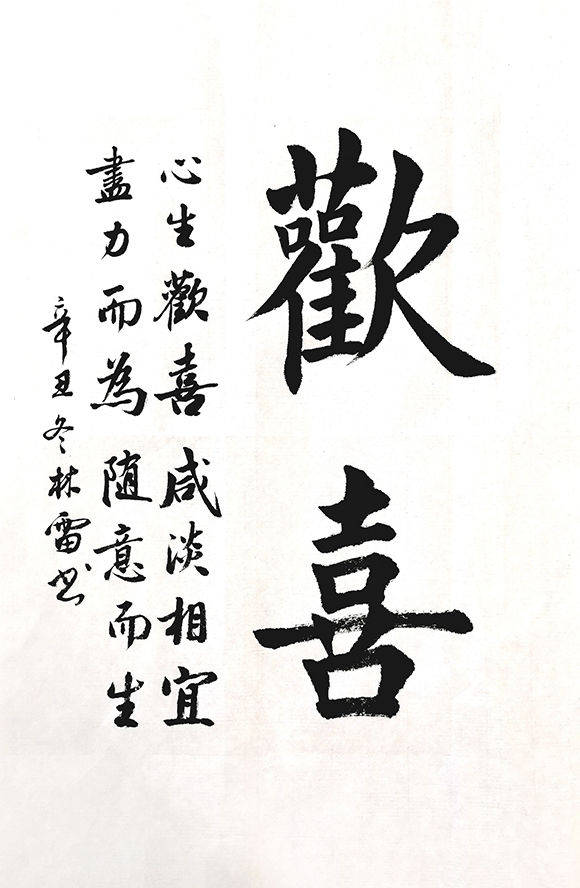 歡喜
心生歡喜咸淡相宜
盡力而為随意而生
辛丑冬林雷书